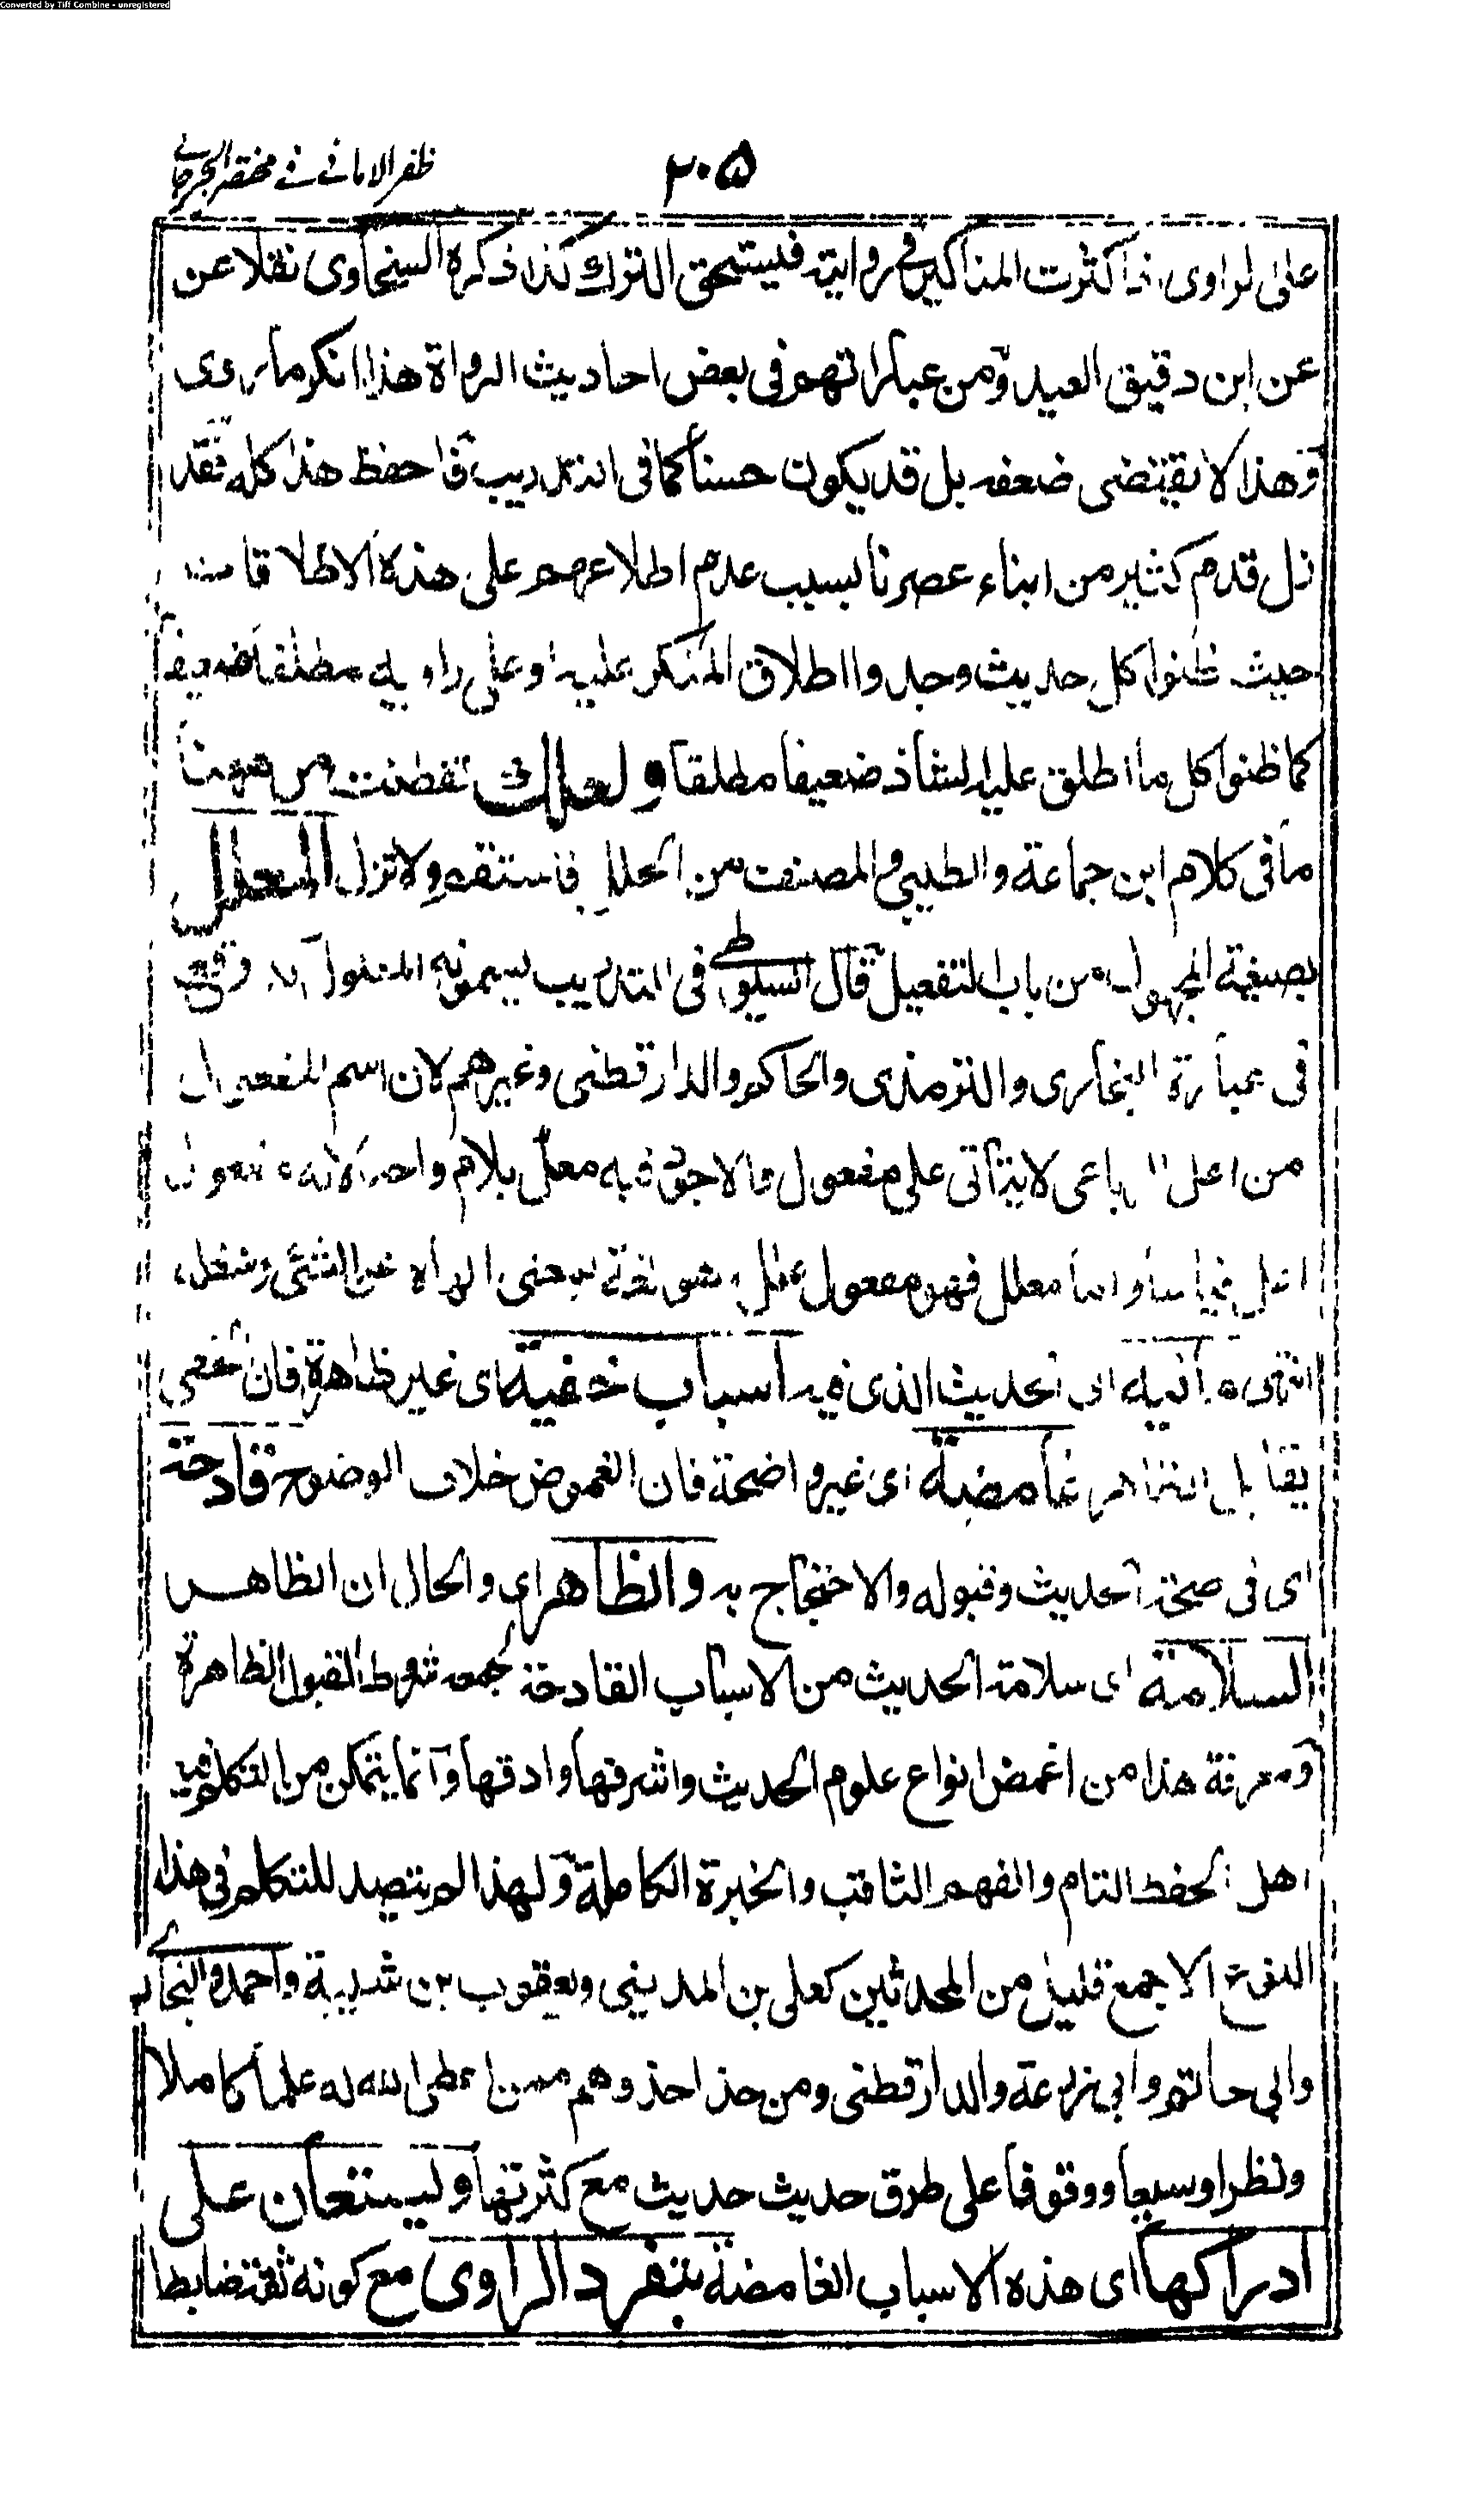 Converted by Tiff Combine - unregistered
٢٠٥
ظفر الامانى فى مختصر الجرجانى
على لراوى اذا كثرت المناكير فى روايته فيستحق الترك كذا ذكره السخاوى نقلا عن
عن ابن دقيق العيد ومن عباراتهم فى بعض احاديث الرواة هذا انكر ما روى
وهذا لا يقتضى ضعفه بل قد يكون حسنا كما فى التدريب فاحفظ هذا كله فقد
زل قدم كثير من ابناء عصرنا بسبب عدم اطلاعهم على هذه الاطلاقات
حيث ظنوا كل حديث وجدوا اطلاق المنكر عليه او على راويه مطلقا ضعيفا
كما ظنوا كل ما اطلق عليه الشاذ ضعيفا مطلقا ولعلك تفطنت من ههنا
ما فى كلام ابن جماعة والطيبى والمصنف من الخلل فاستقم ولا تزل المعلل
بصيغة المجهول من باب التفعيل قال السيوطى فى التدريب يسمونه المعلول كذا وقع
فى عبارة البخارى والترمذى والحاكم والدارقطنى وغيرهم لان اسم المفعول
من اعل الرباعى لا يتأتى على مفعول والاجود فيه معل بلام واحدة لانه مفعول
اعل قياسا واما معلل فهو مفعول علل وهو لغة بمعنى الهاه عن الشئ وشغله
انتهى ما فيه اى الحديث الذى فيه اسباب خفية اى غير ظاهرة فان الخفى
يقابل الظاهر غامضة اى غير واضحة فان الغموض خلاف الوضوح قادحة
اى فى صحة الحديث وقبوله والاحتجاج به والظاهر اى والحال ان الظاهر
السلامة اى سلامة الحديث من الاسباب القادحة لجمعه شروط القبول الظاهرة
ومعرفة هذا من اغمض انواع علوم الحديث واشرفها وادقها وانما يتمكن من التكلم فيه
اهل الحفظ التام والفهم الثاقب والخبرة الكاملة ولهذا لم يتصد للتكلم فى هذا
النوع الا جمع قليل من المحدثين كعلى بن المدينى ويعقوب بن شيبة واحمد والبخارى
وابى حاتم وابى زرعة والدارقطنى ومن حذا حذوهم ممن اعطى الله له علما كاملا
ونظرا وسيعا ووقوفا على طرق حديث حديث مع كثرتها ويستعان على
ادراكها اى هذه الاسباب الغامضة بتفرد الراوى مع كونه ثقة ضابطا